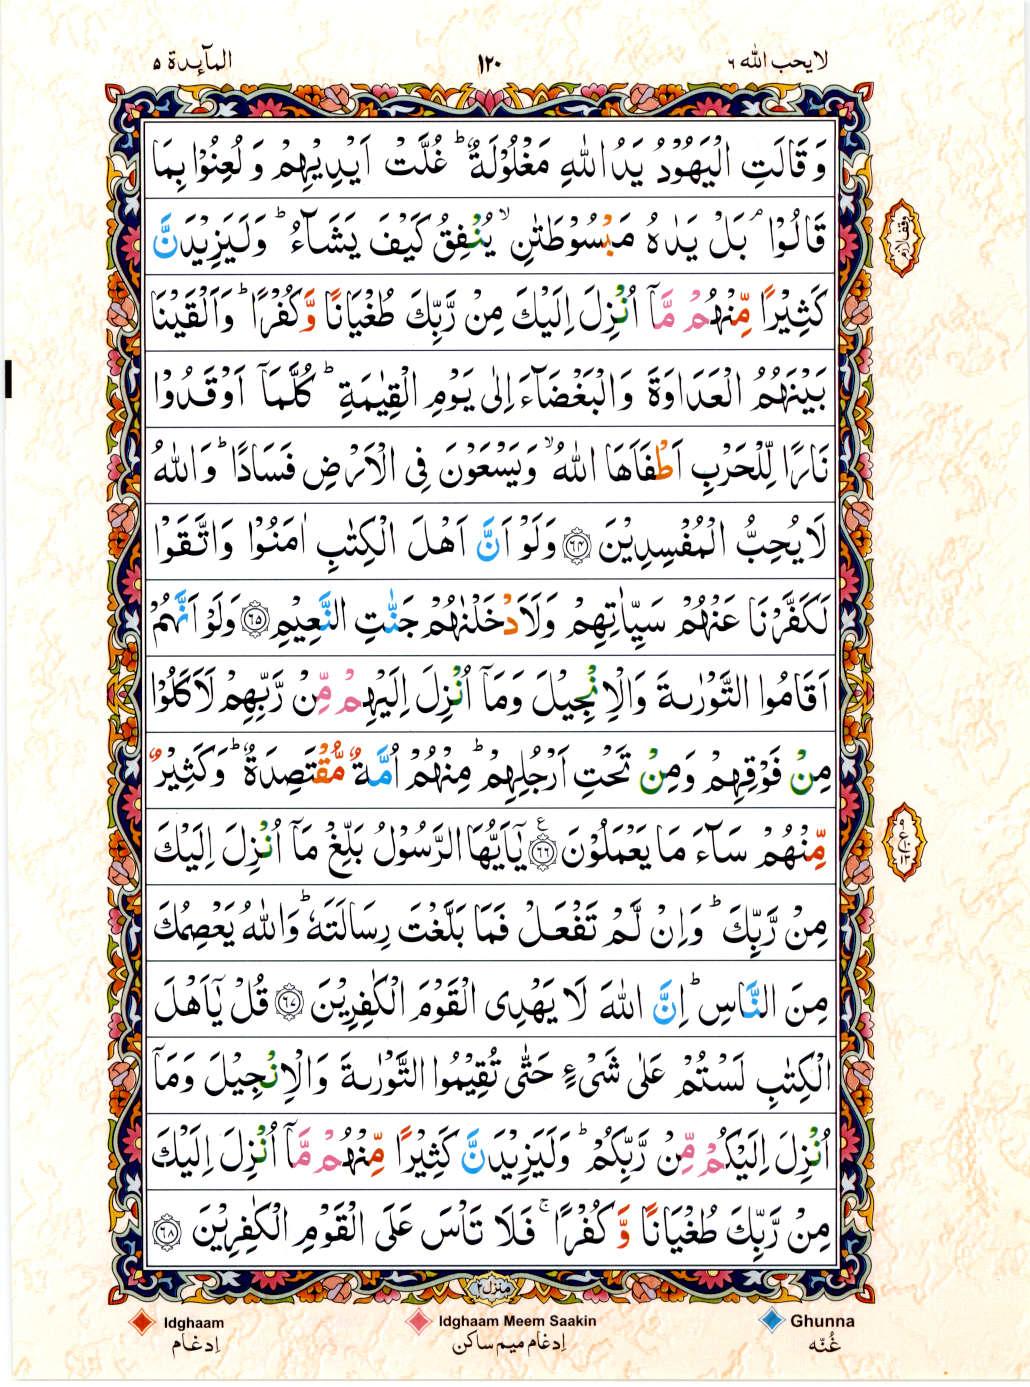 لا یحب الله ٦
١٢٠
المآىِٕدة ٥
وَ قَالَتِ الْیَهُوْدُ یَدُ اللّٰهِ مَغْلُوْلَةٌ ؕ غُلَّتْ اَیْدِیْهِمْ وَ لُعِنُوْا بِمَا
قَالُوْا ۘ بَلْ یَدٰهُ مَبْسُوْطَتٰنِ ۙ یُنْفِقُ كَیْفَ یَشَآءُ ؕ وَلَیَزِیْدَنَّ
وقف لازم
كَثِیْرًا مِّنْهُمْ مَّاۤ اُنْزِلَ اِلَیْكَ مِنْ رَّبِّكَ طُغْیَانًا وَّكُفْرًا ؕ وَاَلْقَیْنَا
بَیْنَهُمُ الْعَدَاوَةَ وَالْبَغْضَآءَ اِلٰی یَوْمِ الْقِیٰمَةِ ؕ كُلَّمَاۤ اَوْقَدُوْا
نَارًا لِّلْحَرْبِ اَطْفَاَهَا اللّٰهُ ۙ وَیَسْعَوْنَ فِی الْاَرْضِ فَسَادًا ؕ وَاللّٰهُ
لَا یُحِبُّ الْمُفْسِدِیْنَ ﴿٦٤﴾ وَلَوْ اَنَّ اَهْلَ الْكِتٰبِ اٰمَنُوْا وَاتَّقَوْا
لَكَفَّرْنَا عَنْهُمْ سَیِّاٰتِهِمْ وَلَاَدْخَلْنٰهُمْ جَنّٰتِ النَّعِیْمِ ﴿٦٥﴾ وَلَوْ اَنَّهُمْ
اَقَامُوا التَّوْرٰىةَ وَالْاِنْجِیْلَ وَمَاۤ اُنْزِلَ اِلَیْهِمْ مِّنْ رَّبِّهِمْ لَاَكَلُوْا
مِنْ فَوْقِهِمْ وَمِنْ تَحْتِ اَرْجُلِهِمْ ؕ مِنْهُمْ اُمَّةٌ مُّقْتَصِدَةٌ ؕ وَكَثِیْرٌ
مِّنْهُمْ سَآءَ مَا یَعْمَلُوْنَ ﴿٦٦﴾ یٰۤاَیُّهَا الرَّسُوْلُ بَلِّغْ مَاۤ اُنْزِلَ اِلَیْكَ
ع
مِنْ رَّبِّكَ ؕ وَاِنْ لَّمْ تَفْعَلْ فَمَا بَلَّغْتَ رِسَالَتَهٗ ؕ وَاللّٰهُ یَعْصِمُكَ
مِنَ النَّاسِ ؕ اِنَّ اللّٰهَ لَا یَهْدِی الْقَوْمَ الْكٰفِرِیْنَ ﴿٦٧﴾ قُلْ یٰۤاَهْلَ
الْكِتٰبِ لَسْتُمْ عَلٰی شَیْءٍ حَتّٰی تُقِیْمُوا التَّوْرٰىةَ وَالْاِنْجِیْلَ وَمَاۤ
اُنْزِلَ اِلَیْكُمْ مِّنْ رَّبِّكُمْ ؕ وَلَیَزِیْدَنَّ كَثِیْرًا مِّنْهُمْ مَّاۤ اُنْزِلَ اِلَیْكَ
مِنْ رَّبِّكَ طُغْیَانًا وَّكُفْرًا ۚ فَلَا تَاْسَ عَلَی الْقَوْمِ الْكٰفِرِیْنَ ﴿٦٨﴾
منزل ٢
Idghaam Idghaam Meem Saakin Ghunna
غُنّه اِدغام میم ساکن اِدغام